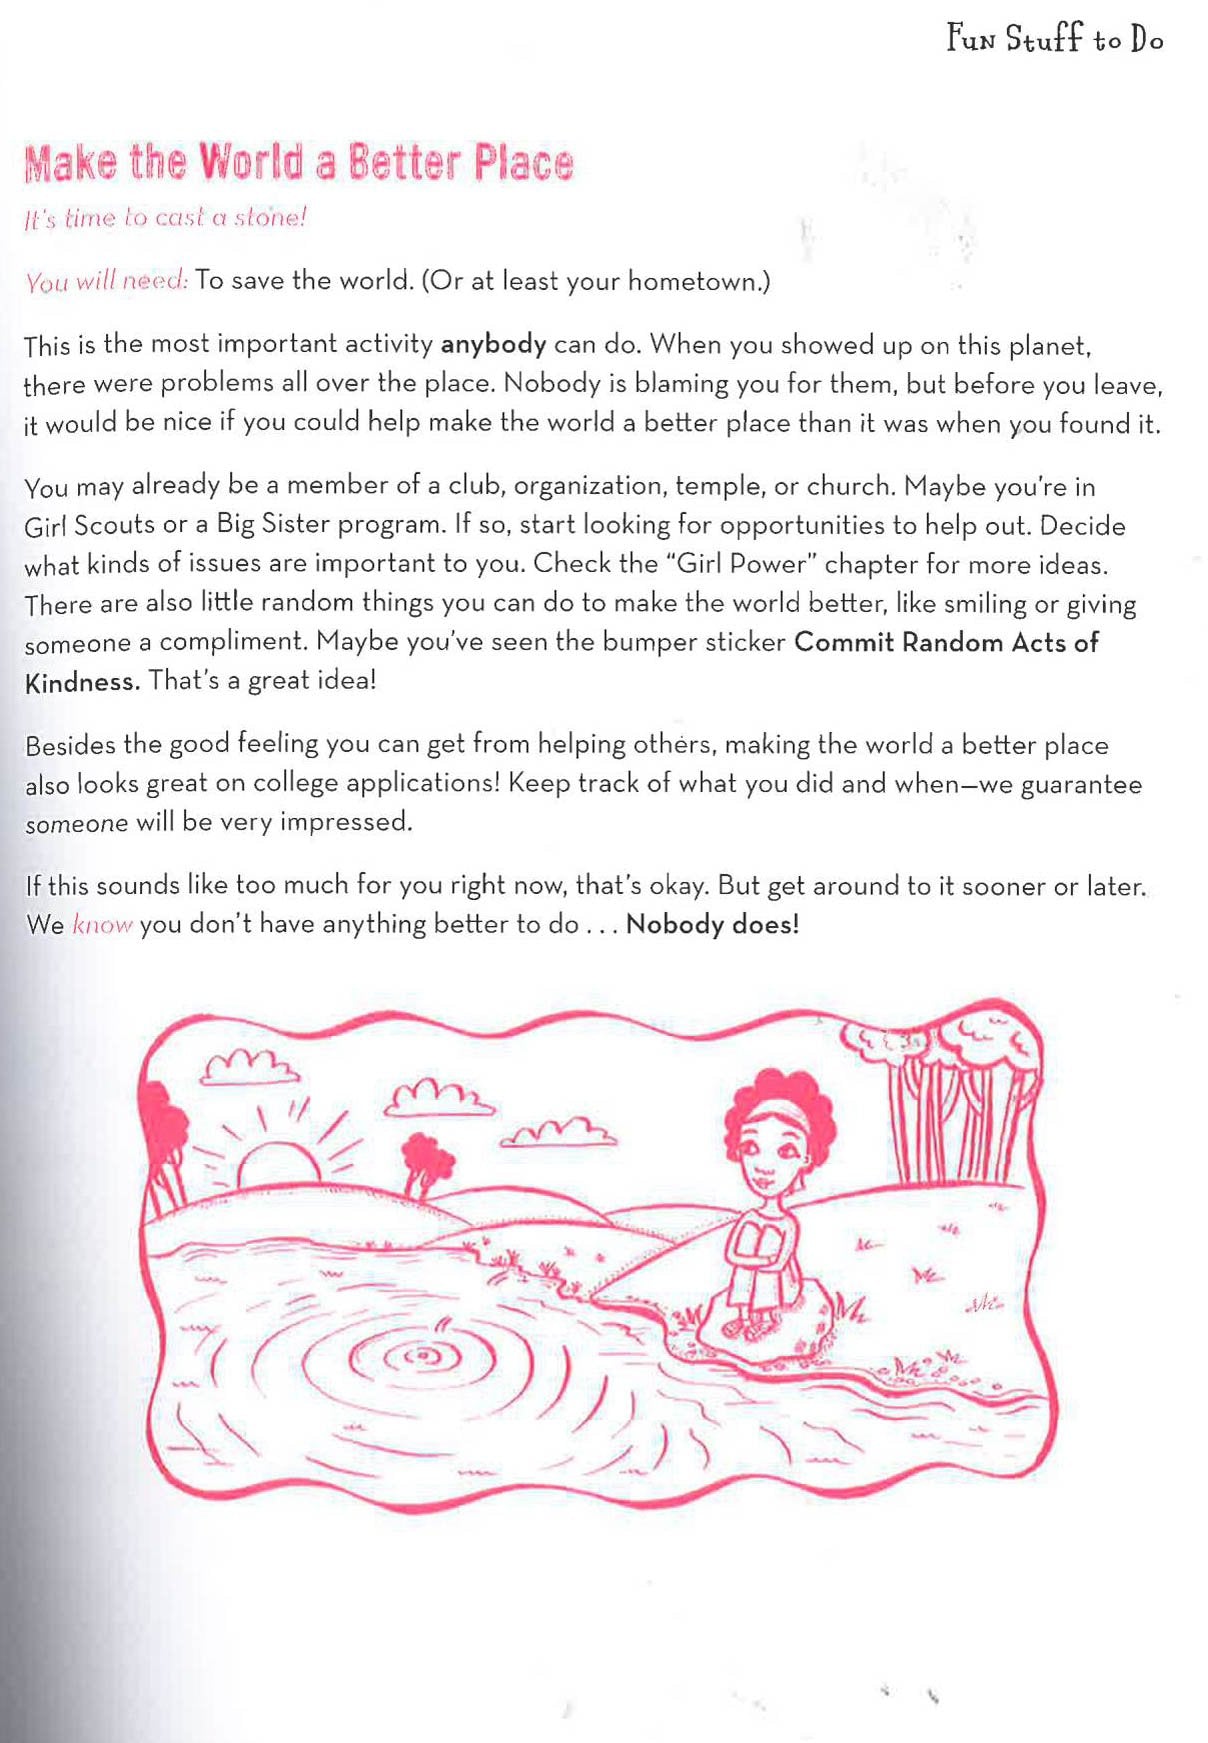 Fun Stuff to Do
Make the World a Better Place
It's time to cast a stone!
You will need: To save the world. (Or at least your hometown.)
This is the most important activity anybody can do. When you showed up on this planet,
there were problems all over the place. Nobody is blaming you for them, but before you leave,
it would be nice if you could help make the world a better place than it was when you found it.
You may already be a member of a club, organization, temple, or church. Maybe you're in
Girl Scouts or a Big Sister program. If so, start looking for opportunities to help out. Decide
what kinds of issues are important to you. Check the "Girl Power" chapter for more ideas.
There are also little random things you can do to make the world better, like smiling or giving
someone a compliment. Maybe you've seen the bumper sticker Commit Random Acts of
Kindness. That's a great idea!
Besides the good feeling you can get from helping others, making the world a better place
also looks great on college applications! Keep track of what you did and when—we guarantee
someone will be very impressed.
If this sounds like too much for you right now, that's okay. But get around to it sooner or later.
We know you don't have anything better to do . . . Nobody does!